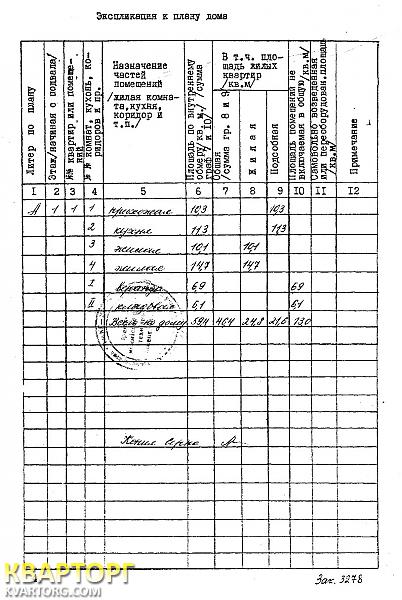 Экспликация к плану дома
Литер по плану
Этаж/начиная с подвала/
№№ квартир или помеще-
ний
№ комнат, кухонь, ко-
ридоров и пр.
Назначение
частей
помещений
/жилая комна-
та, кухня,
коридор и
т.п./
Площадь по внутреннему
обмеру/кв.м,/сумма
граф 7 и 10/
В т.ч. пло-
щадь жилых
квартир
/кв.м/
Общая
/сумма гр. 8 и 9/
Жилая
Подсобная
Площадь помещений не
включаемая в общую/кв.м/
Самовольно возведенная
или переоборудован.площадь
/кв.м/
Примечание
I 2 3 4 5 6 7 8 9 IO II I2
А 1 1 1 прихожая 10,3 10,3
2 кухня 11,3 11,3
3 жилая 10,1 10,1
4 жилая 14,7 14,7
I веранда 6,9 6,9
II кладовая 6,1 6,1
Всего по дому 59,4 46,4 24,8 21,6 13,0
КВАРТОРГ
KVARTORG.COM
Зак. 3278